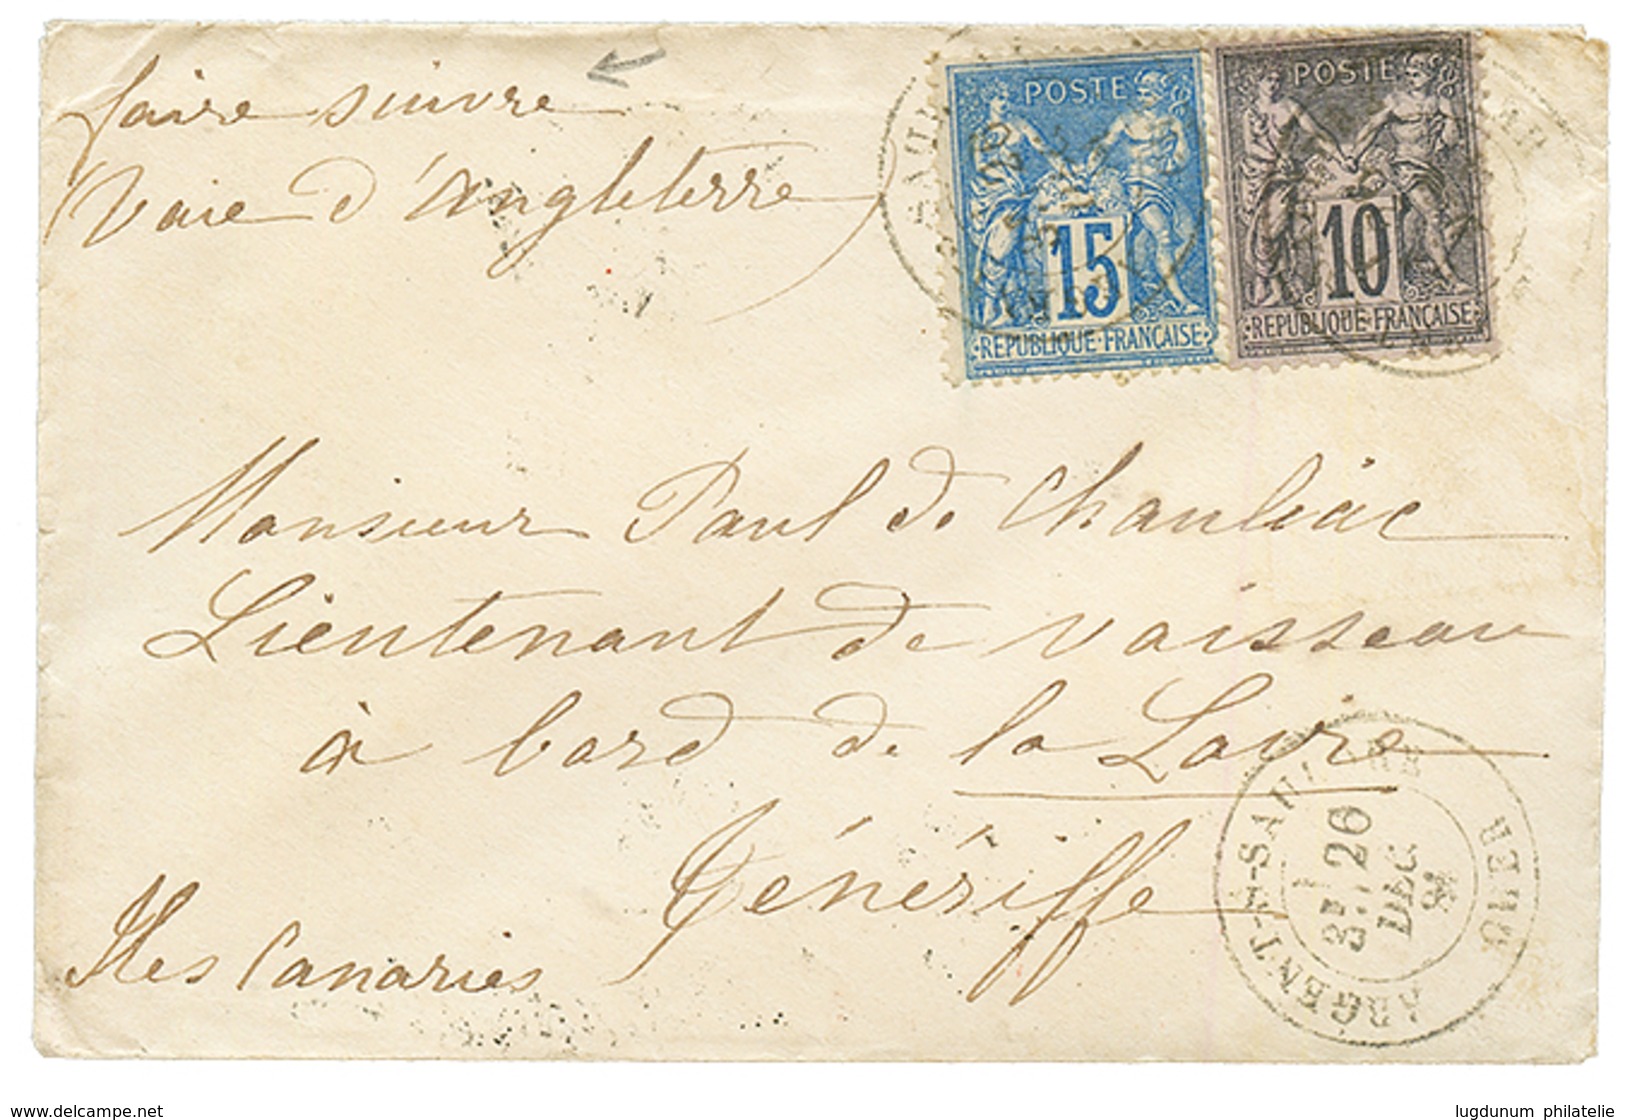 faire suivre
Voie d'Angleterre
POSTE
15
REPUBLIQUE FRANÇAISE
POSTE
10
REPUBLIQUE FRANÇAISE
Monsieur Paul de Chauliac
Lieutenant de vaisseau
à bord de la Loire
Ténériffe
Iles Canaries
ARGENT-S-SAULDRE
CHER
26
DEC
www.delcampe.net
lugdunum philatelie